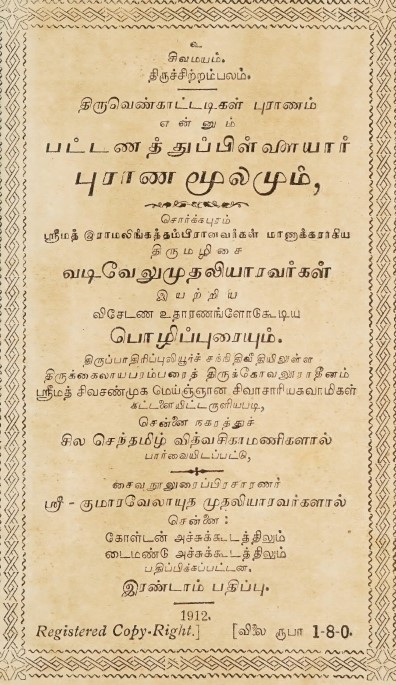 உ
சிவமயம்.
திருச்சிற்றம்பலம்.
திருவெண்காட்டடிகள் புராணம்
என்னும்
பட்டணத்துப்பிள்ளையார்
புராண மூலமும்,
சொர்க்கபுரம்
ஸ்ரீமத் இராமலிங்கத்தம்பிரானவர்கள் மாணாக்கராகிய
திருமழிசை
வடிவேலுமுதலியாரவர்கள்
இயற்றிய
விசேடண உதாரணங்ளோடுகூடிய
பொழிப்புரையும்.
திருப்பாதிரிப்புலியூர்ச் சந்நிதிவீதியிலுள்ள
திருக்கைலாயபரம்பரைத் திருக்கோவலூராதீனம்
ஸ்ரீமத் சிவசண்முக மெய்ஞ்ஞான சிவாசாரியசுவாமிகள்
கட்டளையிட்டருளியபடி,
சென்னை நகரத்துச்
சில செந்தமிழ் வித்வசிகாமணிகளால்
பார்வையிடப்பட்டு,
சைவநூலுரைப்பிரசாரணர்
ஸ்ரீ - குமாரவேலாயுத முதலியாரவர்களால்
சென்னை :
கோள்டன் அச்சுக்கூடத்திலும்
டைமண்டு அச்சுக்கூடத்திலும்
பதிப்பிக்கப்பட்டன.
இரண்டாம் பதிப்பு.
1912.
Registered Copy-Right.] [விலை ரூபா 1-8-0.